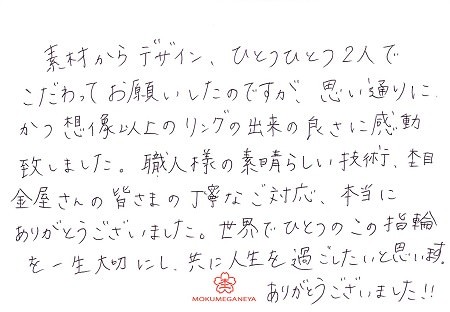 素材からデザイン、ひとつひとつ2人で
こだわってお願いしたのですが、思い通りに
かつ想像以上のリングの出来の良さに感動
致しました。職人様の素晴らしい技術、杢目
金屋さんの皆さまの丁寧なご対応、本当に
ありがとうございました。世界でひとつのこの指輪
を一生大切にし、共に人生を過ごしたいと思います。
ありがとうございました!!
MOKUMEGANEYA